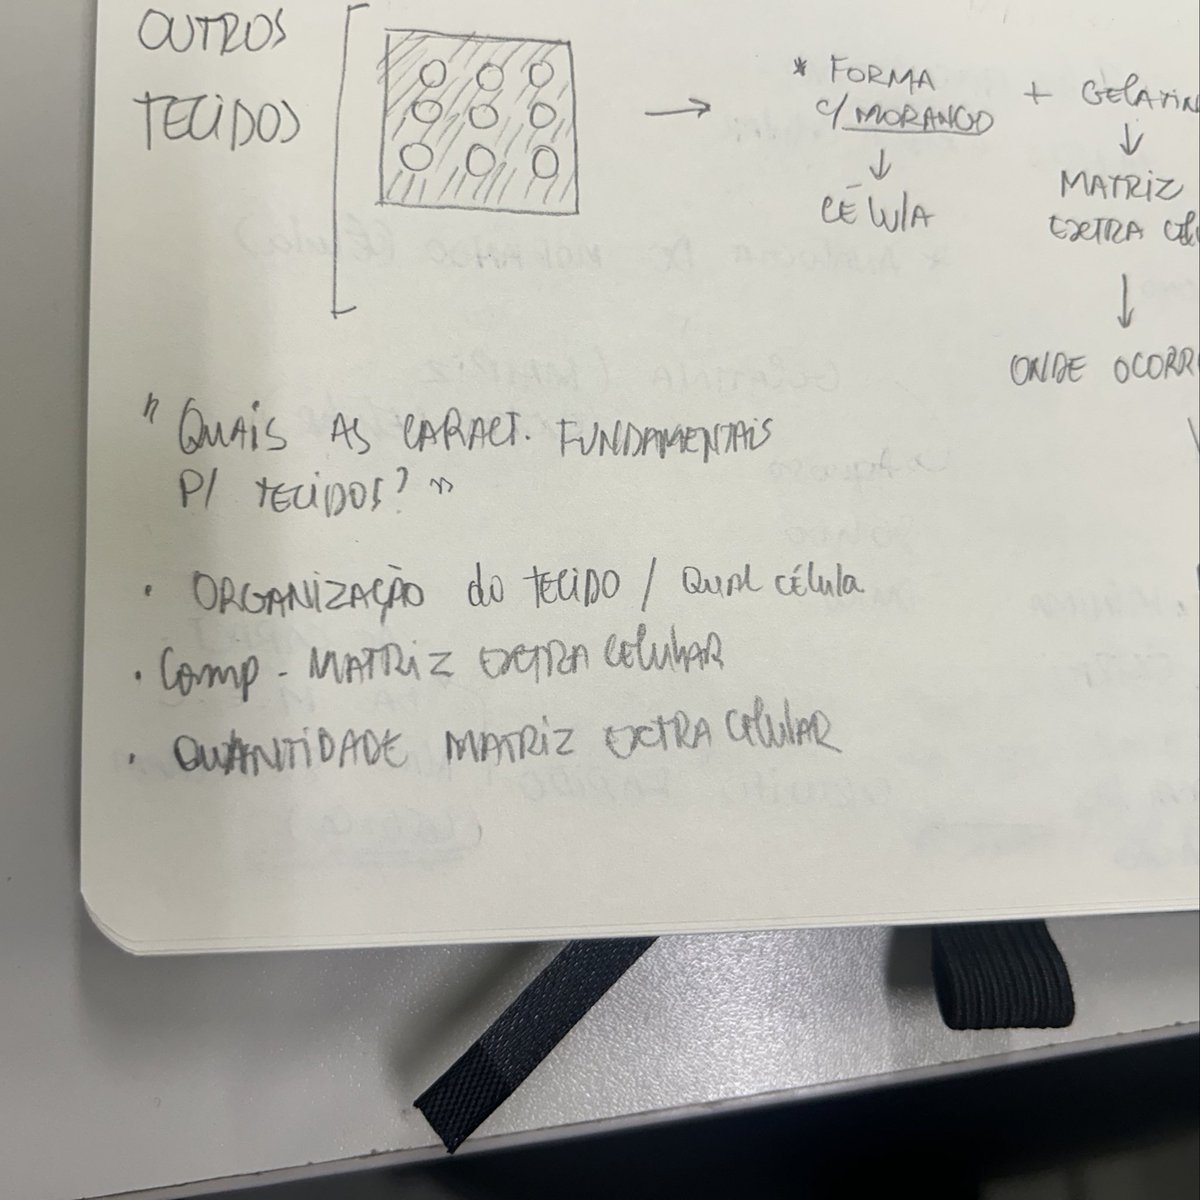 OUTROS
TECIDOS
* FORMA
C/ MORANGO
↓
CÉLULA
+ GELATIN
↓
MATRIZ
EXTRA CEL
↓
ONDE OCORR
"QUAIS AS CARACT. FUNDAMENTAIS
P/ TECIDOS?"
· ORGANIZAÇÃO do TECIDO / QUAL célula
· Comp - MATRIZ EXTRA CELULAR
· QUANTIDADE MATRIZ EXTRA CELULAR